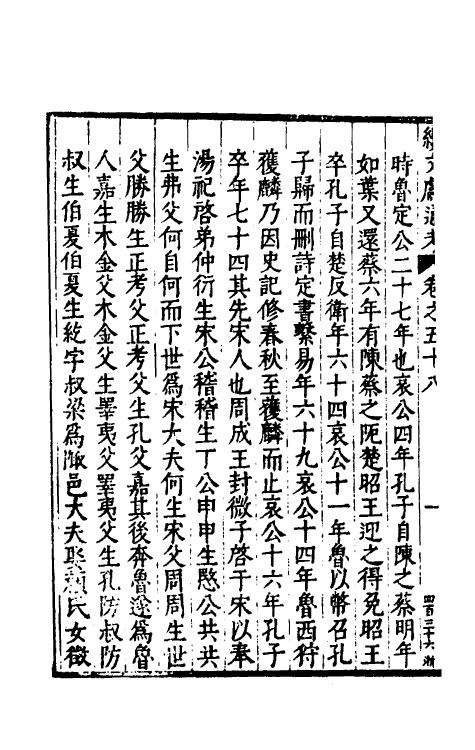 續文獻通考 卷之五十八 一
時魯定公二十七年也哀公四年孔子自陳之蔡明年
如葉又還蔡六年有陳蔡之阨楚昭王迎之得免昭王
卒孔子自楚反衛年六十四哀公十一年魯以幣召孔
子歸而删詩定書繫易年六十九哀公十四年魯西狩
獲麟乃因史記修春秋至獲麟而止哀公十六年孔子
卒年七十四其先宋人也周成王封微子啓于宋以奉
湯祀啓弟仲衍生宋公稽稽生丁公申申生愍公共共
生弗父何自何而下世爲宋大夫何生宋父周周生世
父勝勝生正考父正考父生孔父嘉其後奔魯遂爲魯
人嘉生木金父木金父生睪夷父睪夷父生孔防叔防
叔生伯夏伯夏生紇字叔梁爲陬邑大夫娶顔氏女徵